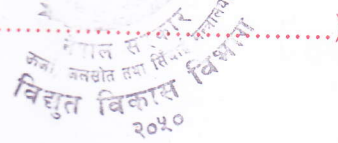 नेपाल सरकार
ऊर्जा जलस्रोत तथा सिंचाई मन्त्रालय
विद्युत विकास विभाग
२०५०